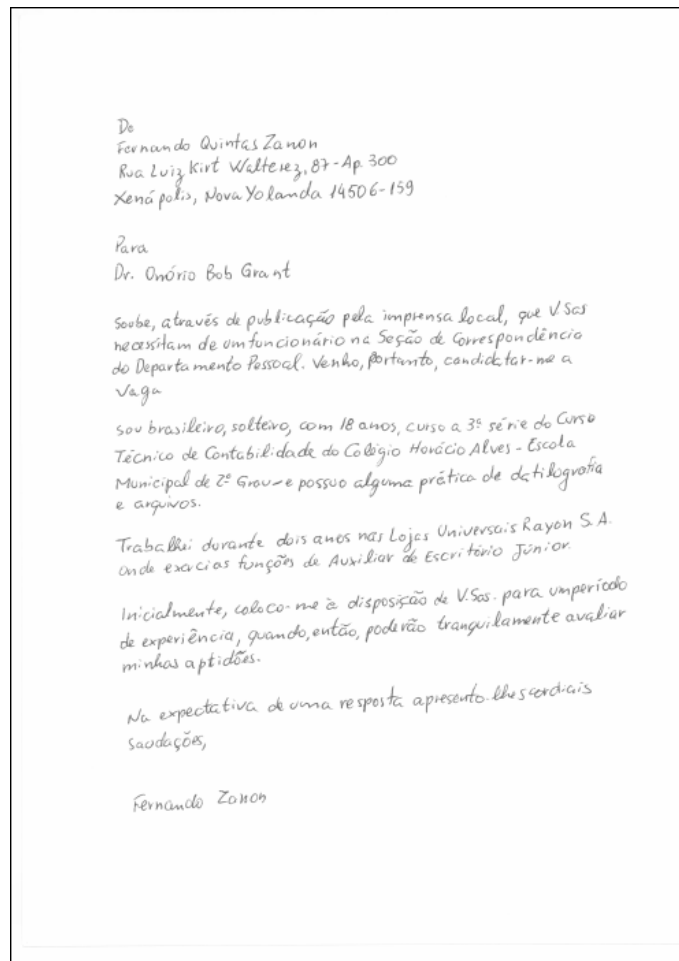 De
Fernando Quintas Zanon
Rua Luiz Kirt Walterez, 87-Ap. 300
Xenápolis, Nova Yolanda 14506-159
Para
Dr. Onório Bob Grant
Soube, através de publicação pela imprensa local, que V.Sas
necessitam de um funcionário na Seção de Correspondência
do Departamento Pessoal. Venho, portanto, candidatar-me a
vaga
Sou brasileiro, solteiro, com 18 anos, curso a 3ª série do Curso
Técnico de Contabilidade do Colégio Horácio Alves - Escola
Municipal de 2º Grau - e possuo alguma prática de datilografia
e arquivos.
Trabalhei durante dois anos nas Lojas Universais Rayon S.A.
onde exercia as funções de Auxiliar de Escritório Júnior.
Inicialmente, coloco-me à disposição de V.Sas. para um período
de experiência, quando, então, poderão tranquilamente avaliar
minhas aptidões.
Na expectativa de uma resposta apresento-lhes cordiais
saudações,
Fernando Zanon